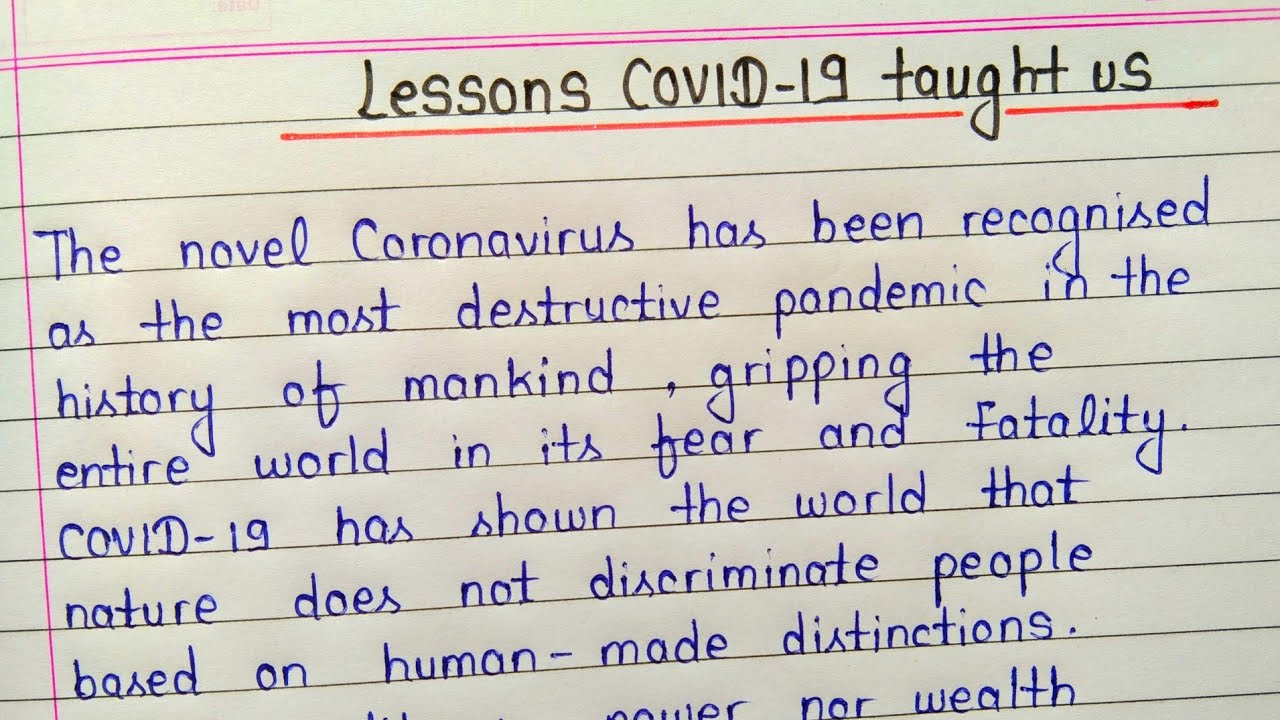 Lessons COVID-19 taught us
The novel Coronavirus has been recognised
as the most destructive pandemic in the
history of mankind , gripping the
entire world in its fear and fatality.
COVID-19 has shown the world that
nature does not discriminate people
based on human-made distinctions.
power nor wealth